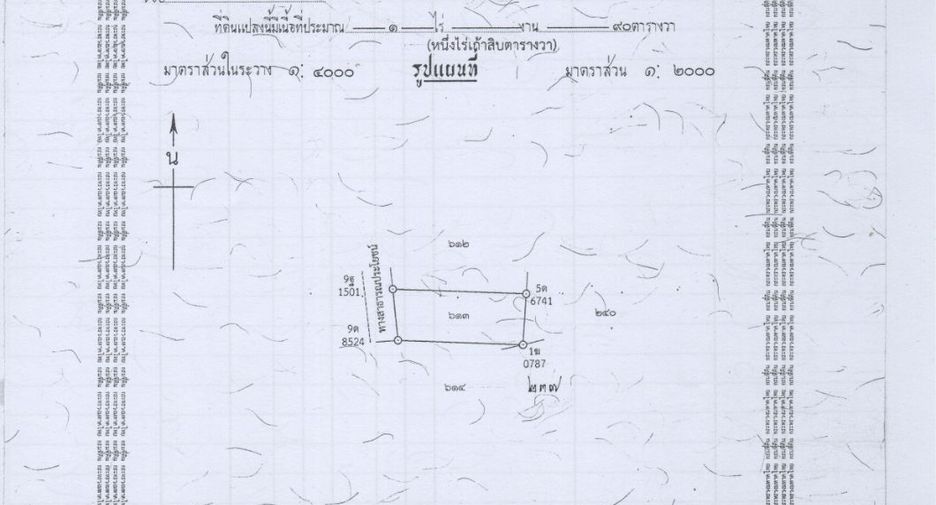 ที่ดินแปลงนี้มีเนื้อที่ประมาณ ๑ ไร่ งาน ๙๐ตารางวา
(หนึ่งไร่เก้าสิบตารางวา)
มาตราส่วนในระวาง ๑: ๔๐๐๐ รูปแผนที่ มาตราส่วน ๑: ๒๐๐๐
น
๖๑๒
ทางสาธารณประโยชน์
1501
5ด
6741
๖๑๓
๒๔๐
9ด
8524
1ฆ
0787
๖๑๔
๒๓๗